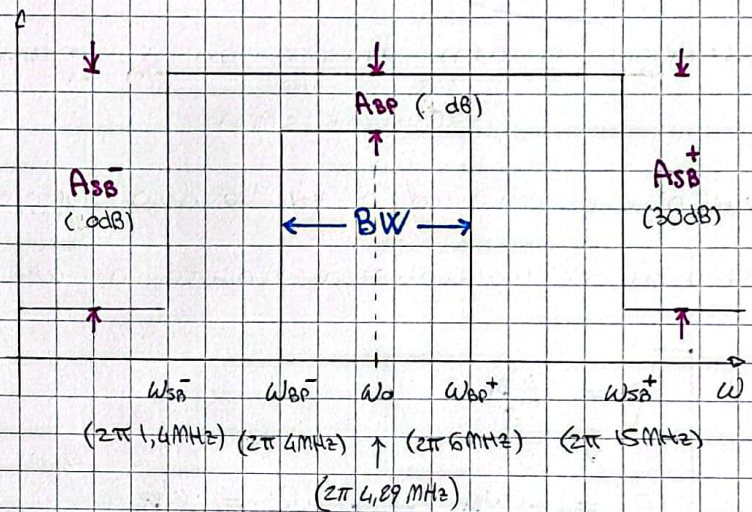 A_BP ( dB)
A_SB⁻ A_SB⁺
( 0dB) (30dB)
BW
ω_SB⁻ ω_BP⁻ ω_0 ω_BP⁺ ω_SB⁺ ω
(2π 1,4MHz) (2π 4MHz) (2π 6MHz) (2π 15MHz)
(2π 4,89 MHz)